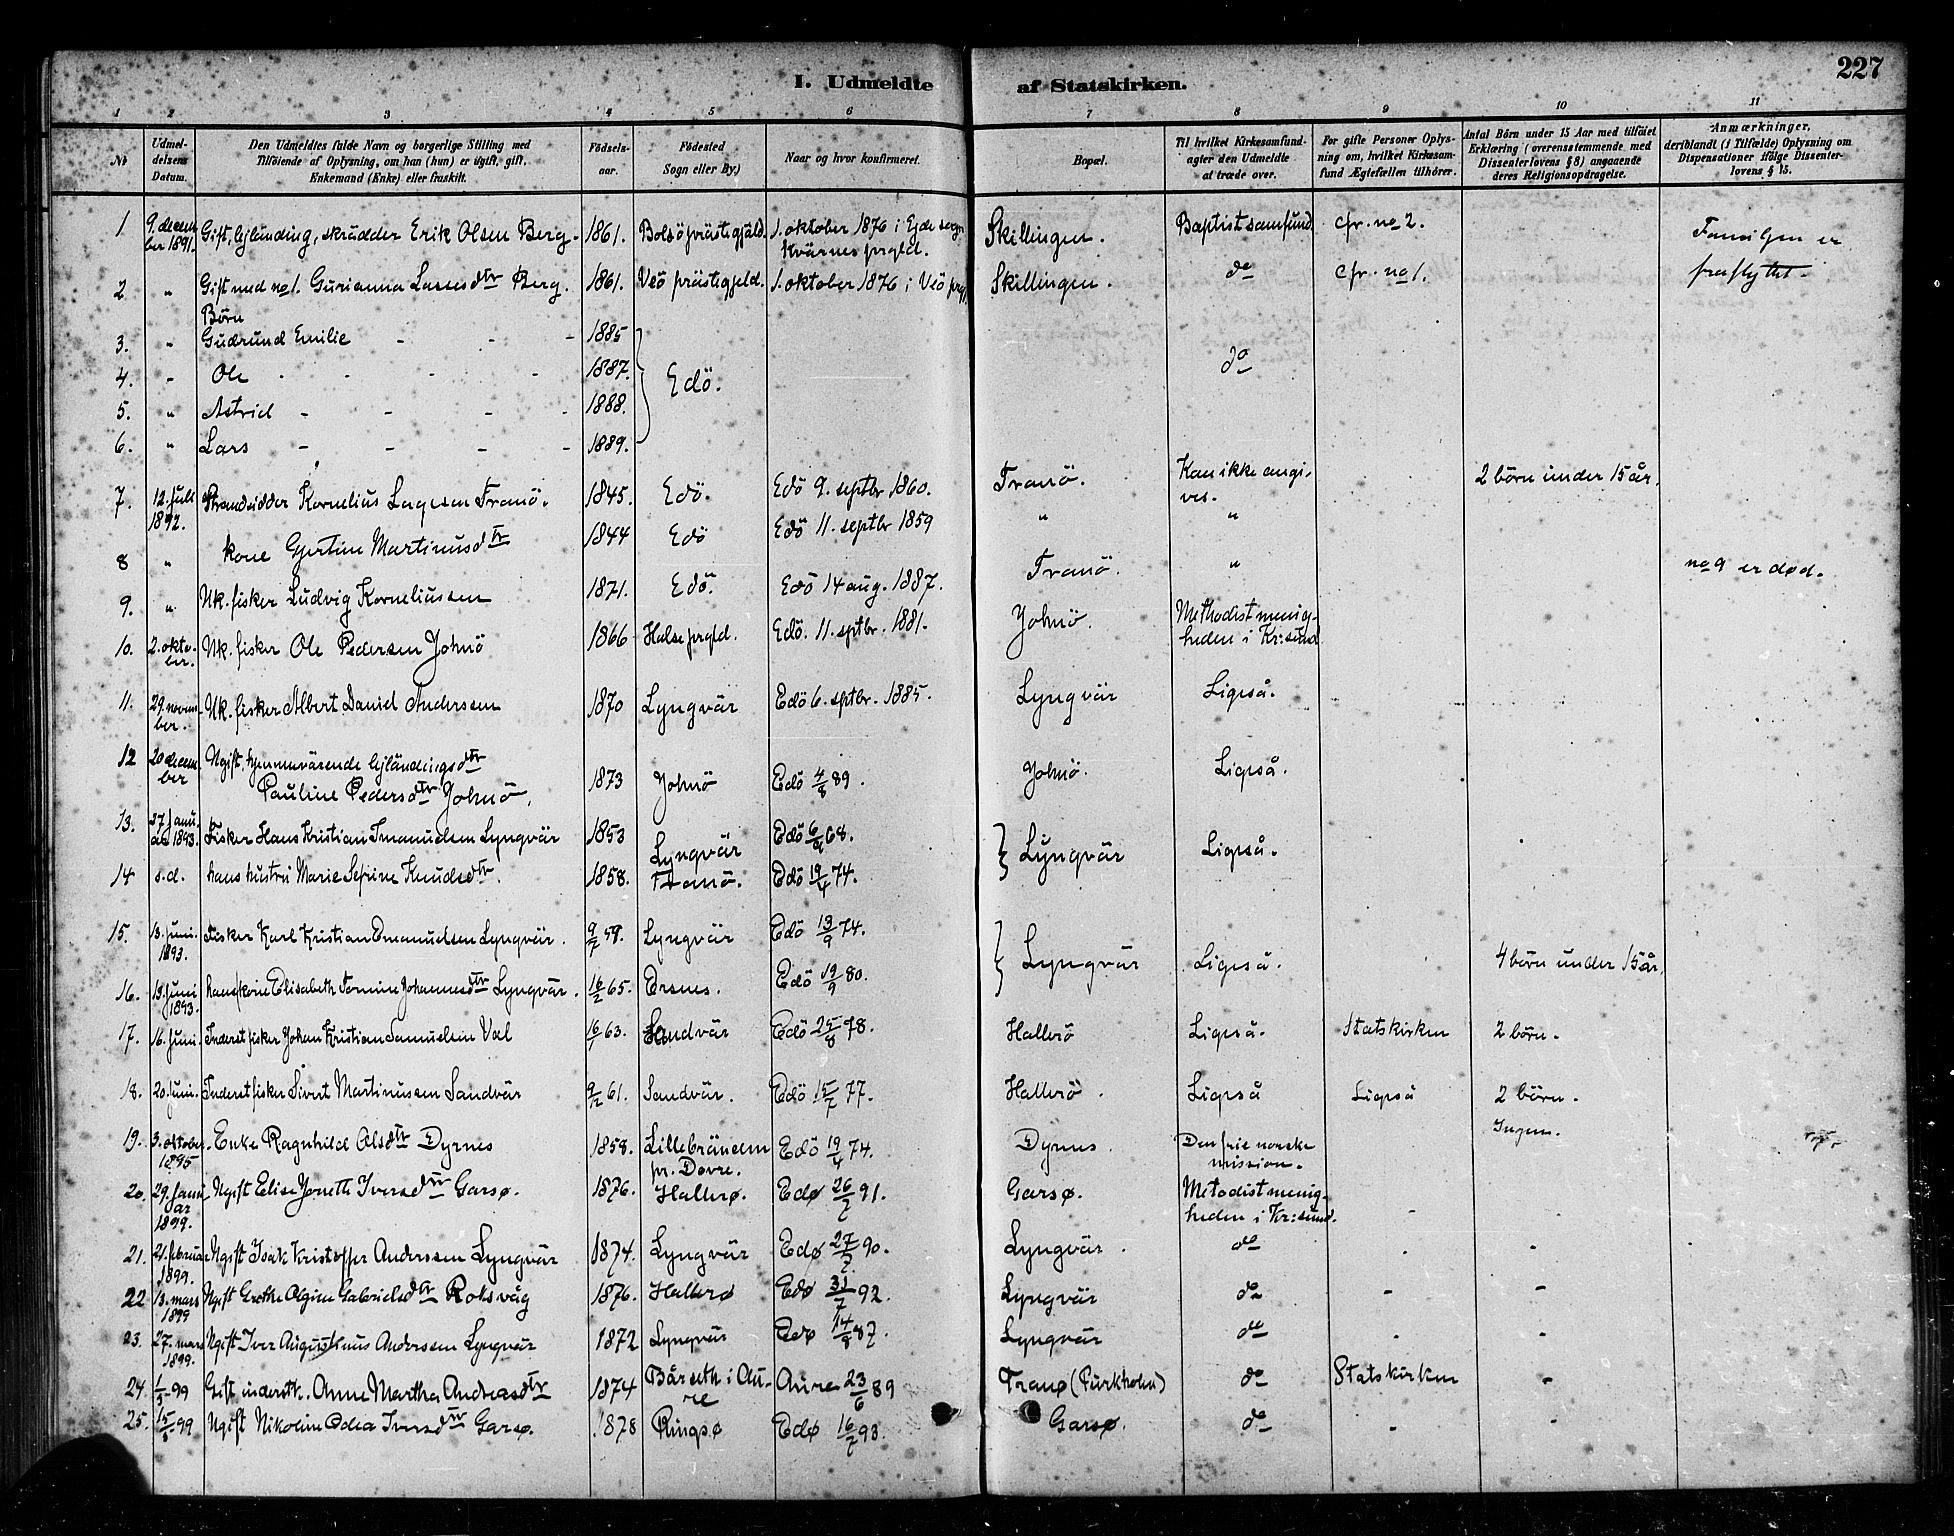 227
I. Udmeldte af Statskirken.
1 2 3 4 5 6 7 8 9 10 11
No
Udmeldelsens Datum.
Den Udmeldtes fulde Navn og borgerlige Stilling med
Tilföiende af Oplysning, om han (hun) er ugift, gift,
Enkemand (Enke) eller fraskilt.
Födselsaar.
Födested
Sogn eller By.)
Naar og hvor konfirmeret.
Bopæl.
Til hvilket Kirkesamfund
agter den Udmeldte
at træde over.
For gifte Personer Oplysning om, hvilket Kirkesamfund Ægtefællen tilhörer.
Antal Börn under 15 Aar med tilföiet
Erklæring (overensstemmende med
Dissenterlovens § 8) angaaende
deres Religionsopdragelse.
Anmærkninger,
deriblandt (i Tilfælde) Oplysning om
Dispensationer ifölge Dissenterlovens § 15.
1 9. december 1891. Gift, lejländing, skrädder Erik Olsen Berg. 1861. Bolsöprästigjäld. 1. oktober 1876 i Ejde sogn Kvärnes prgld. Skillingen. Baptistsamfund. cfr. no 2. Familjen er
2 " Gift med no 1. Gurianna Lassesdtr Berg. 1861. Veö prästigjeld. 1. oktober 1876 i Veö prgj. Skillingen. do cfr. no 1. fraflyttet.
Börn
3. " Gudrund Emilie - - - 1885
4. - Ole - - - - 1887. Edö. do
5. " Astrid - - - - 1888.
6. " Lars - - - - 1889.
7. 12. juli 1892. Strandsidder Kornelius Tranö. 1845. Edö. Edö 9. septbr 1860. Tranö. Kan ikke angives. 2 börn under 15 år.
8 " kone Gjertine Martinusdtr 1844 Edö Edö 11. septbr 1859 " "
9. " Uk. fisker Ludvig Korneliussen 1871. Edö. Edö 14 aug. 1887. Tranö. " no 9 er død.
10. 2. oktober. Uk. fisker Ole Pedersen Johnö 1866 Halse prgld. Edö. 11. sptbr. 1881. Johnö. Methodistmenigheden i Kr:sund
11. 29. november. Uk. fisker Albert Daniel Anderssen 1870 Lyngvär Edö 6. sptbr. 1885. Lyngvär Ligeså.
12 20 december Ugift, hjemmevärende lejländingsdtr
Pauline Pedersdtr Johnö. 1873 Johnö Edö 4/8 89. Johnö. Ligeså.
13. 27. januar 1893. Fisker Hans Kristian Imanuelsen Lyngvär 1853 Lyngvär Edö 6/9 68. Lyngvär Ligeså.
14 s.d. hans hustru Marie Sefrine Knudsdtr. 1858. Tranö. Edö 19/4 74.
15. 13. juni. 1893. Fisker Karl Kristian Emanuelsen Lyngvär. 9/7 59. Lyngvär Edö 13/9 74. Lyngvär Ligeså. 4 börn under 15 år.
16. 13. juni 1893. hans kone Elisabeth Johannesdtr Lyngvär. 16/2 65. Ersnes. Edö 19/9 80.
17. 16. juni. Inderst fisker Johan Kristian Samuelsen Val 16/1 63. Sandvär Edö 25/8 78. Hallerö Ligeså. Statskirken 2 börn.
18. 20. juni. Inderst fisker Sivert Martinussen Sandvär 9/12 61. Sandvär. Edö 15/7 77. Hallerö. Ligeså Ligeså 2 börn.
19. 3. oktober 1895 Enke Ragnhild Olsdtr Dyrnes 1858. Lillebränden pr. Dovre. Edö 19/4 74. Dyrnes. Den frie norske mission. Ingen.
20. 29. januar 1899. Ugift Elise Jonette Iversdtr Garsø. 1876. Hallerø. Edø 26/7 91. Garsø. Metodistmenigheden i Kr:sund. -
21. 21. februar 1899. Ugift Isak Kristoffer Anderssen Lyngvär 1874. Lyngvär Edø 27/7 90. Lyngvär. do - -
22 13. mars 1899 Ugift Grethe Gabrielsdtr Roksvåg 1876. Hallerø Edø 31/7 92. Lyngvär do - -
23. 27. mars 1899. Ugift Iver Augustinus Anderssen Lyngvär 1872 Lyngvär Edø 14/8 87. Lyngvär do - -
24. 1/5-99 Gift inderstk. Anne Martha Andreasdtr 1874 Bårseth i Aure Aure 23/6 89 Tranø (Purkholm) do Statskirken -
25. 15/8-99 Ugift Nikoline Odea Iversdtr Garsø. 1878 Ringsø Edø 16/7 93. Garsø. do -